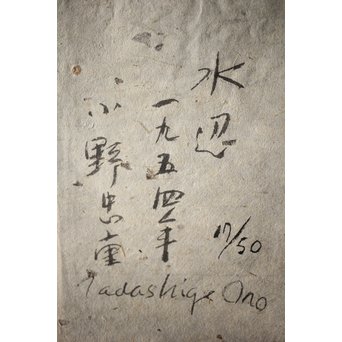 水辺
一九五四年
小野忠重
17/50
Tadashige Ono